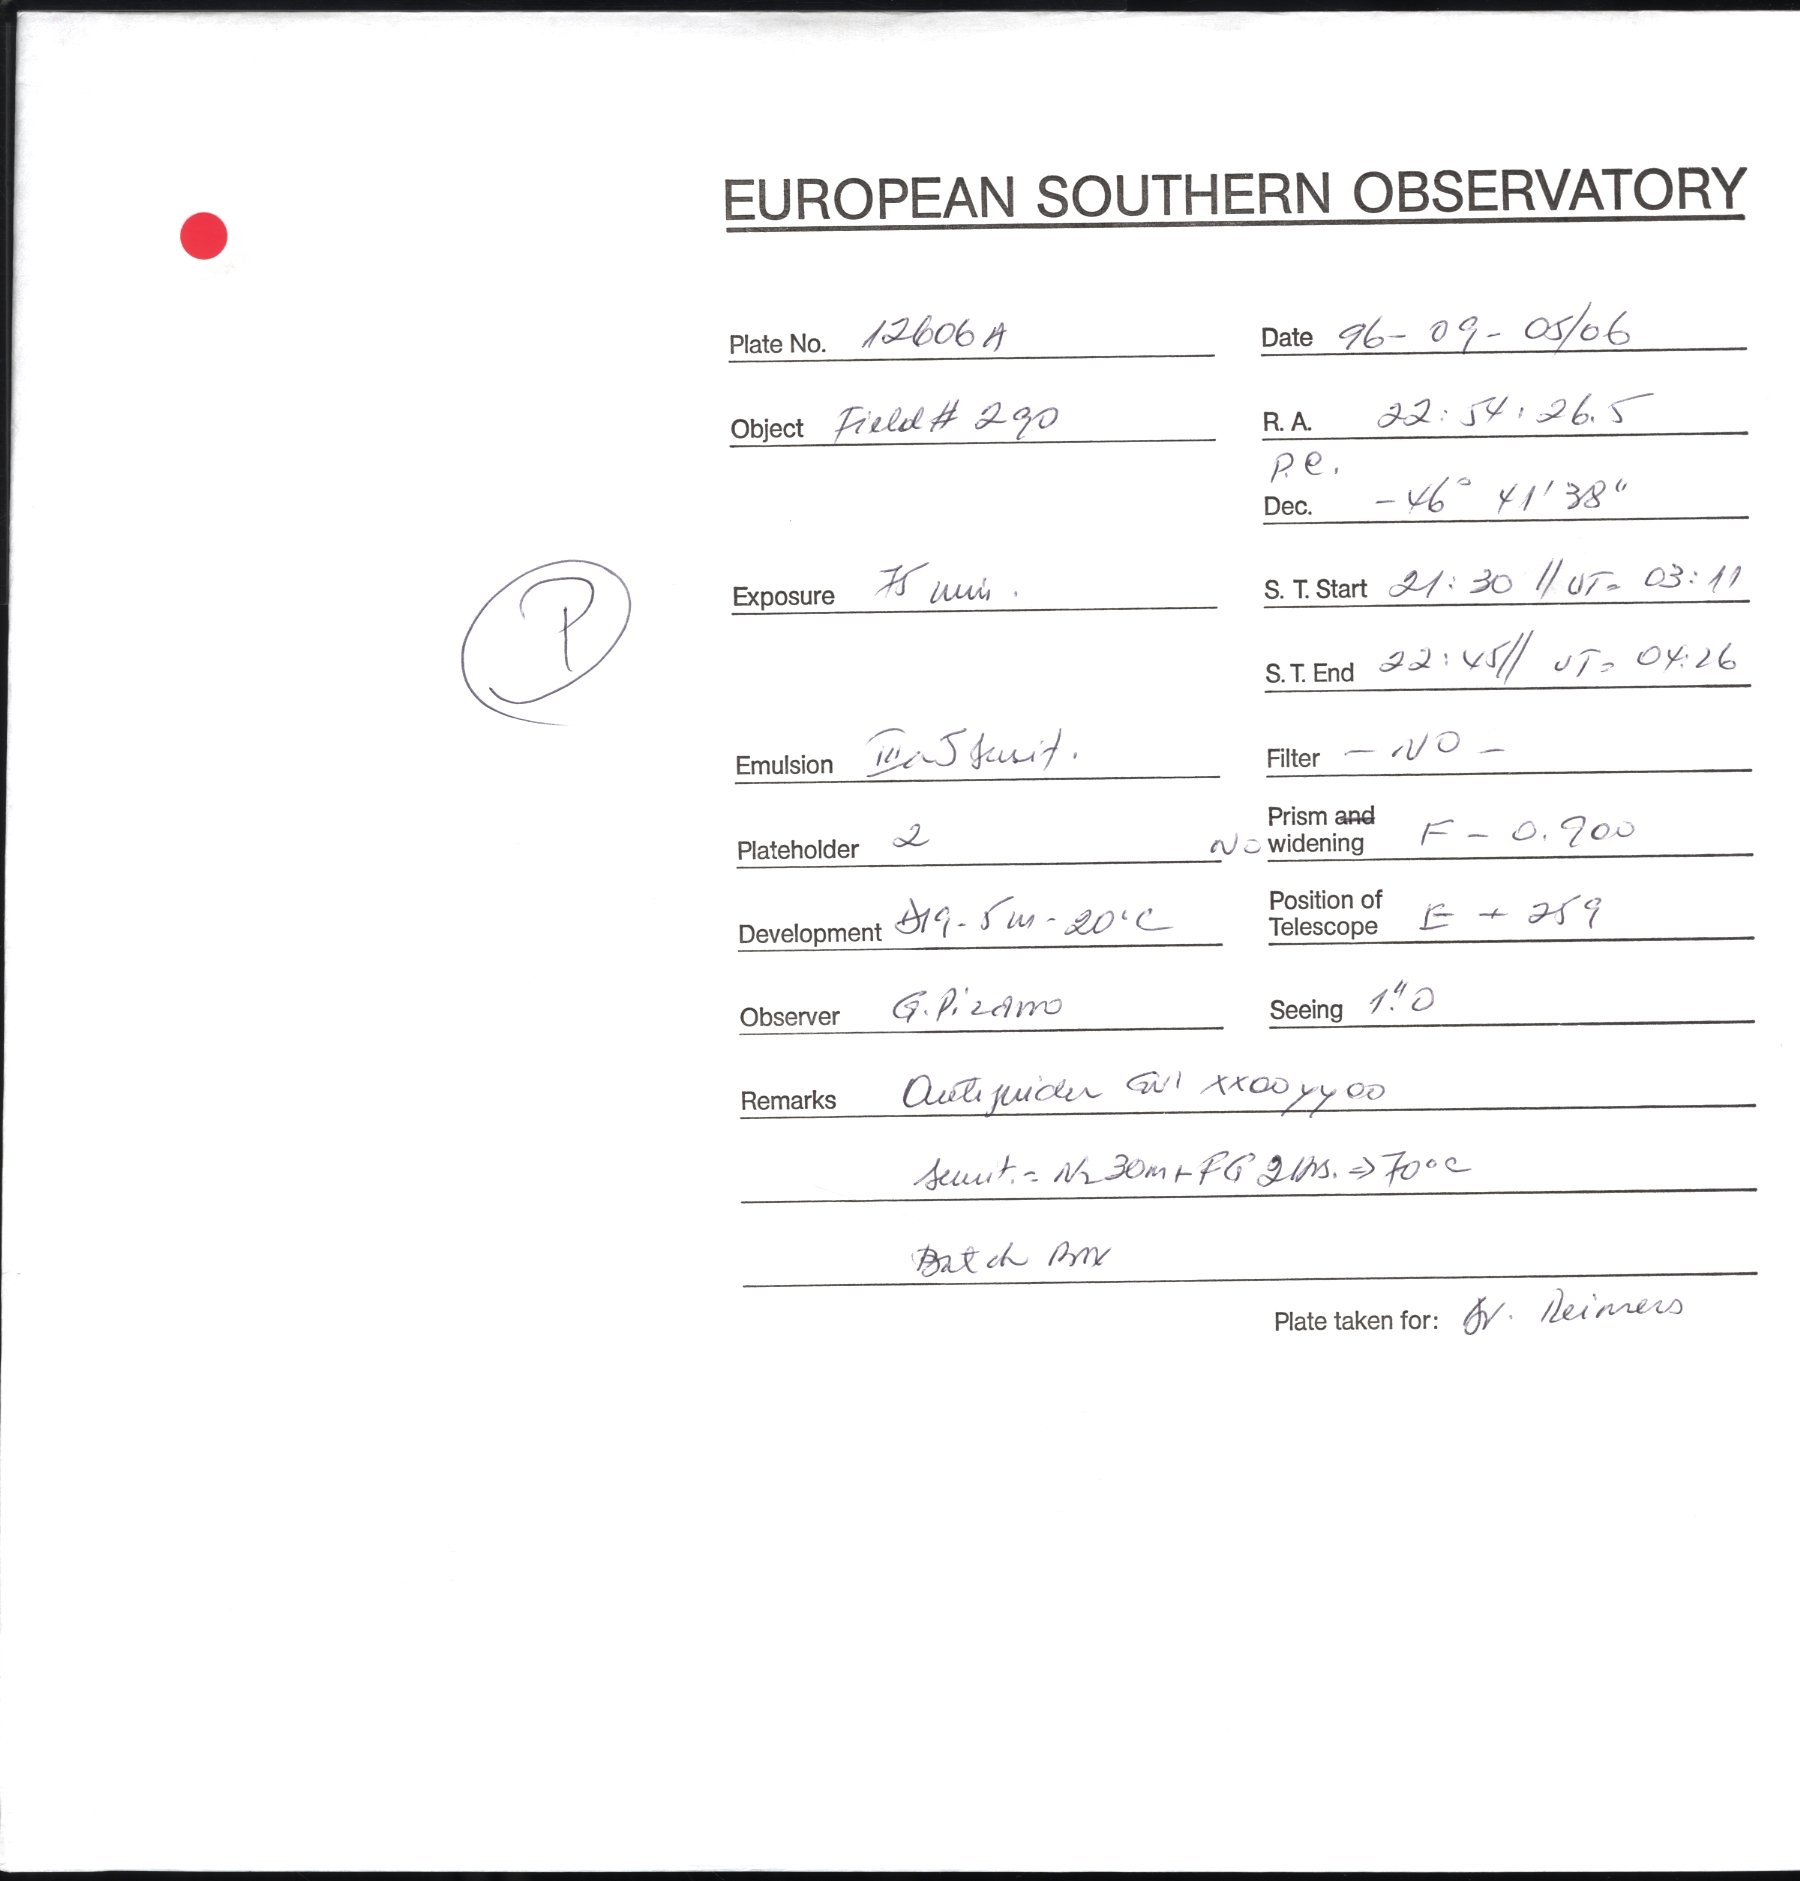 EUROPEAN SOUTHERN OBSERVATORY
Plate No. 12606 A Date 96-09-05/06
Object Field # 290 R. A. 22:54:26.5
P.e.
Dec. -46° 41' 38"
P
Exposure 75 min. S. T. Start 21:30 // UT= 03:11
S. T. End 22:45 // UT= 04:26
Emulsion IIIaJ sensit. Filter - NO -
Plateholder 2 NO Prism and widening F - 0.900
Development D19-5m-20°C Position of Telescope E + 259
Observer G. Pizarro Seeing 1".0
Remarks Autoguider xx00yy00
sensit. = N2 30m + FG 2 hrs. => 70°C
Batch Box
Plate taken for: Dr. Reimers